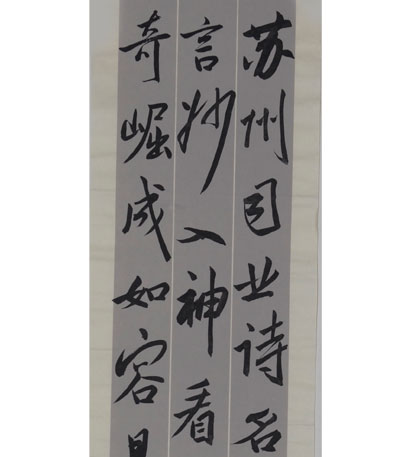 苏州司业诗名
言妙入神看
奇崛成如容